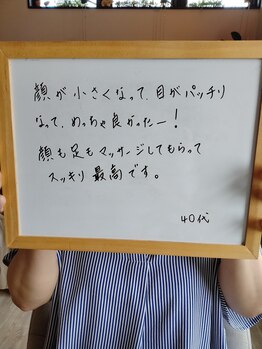 顔が小さくなって、目がパッチリ
なって、めっちゃ良かったー!
顔も足もマッサージしてもらって
スッキリ最高です。
40代